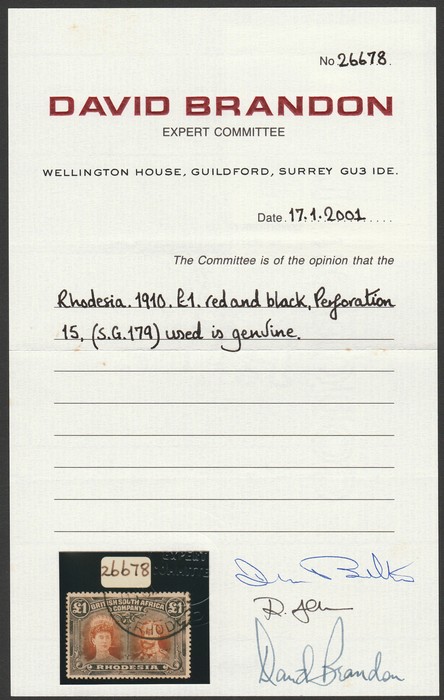 No 26678.
DAVID BRANDON
EXPERT COMMITTEE
WELLINGTON HOUSE, GUILDFORD, SURREY GU3 1DE.
Date 17.1.2001....
The Committee is of the opinion that the
Rhodesia. 1910. £1. red and black, Perforation
15, (S.G.179) used is genuine.
26678
EXPERT
COMMITTEE
£1 BRITISH SOUTH AFRICA £1
COMPANY
RHODESIA
David Brandon